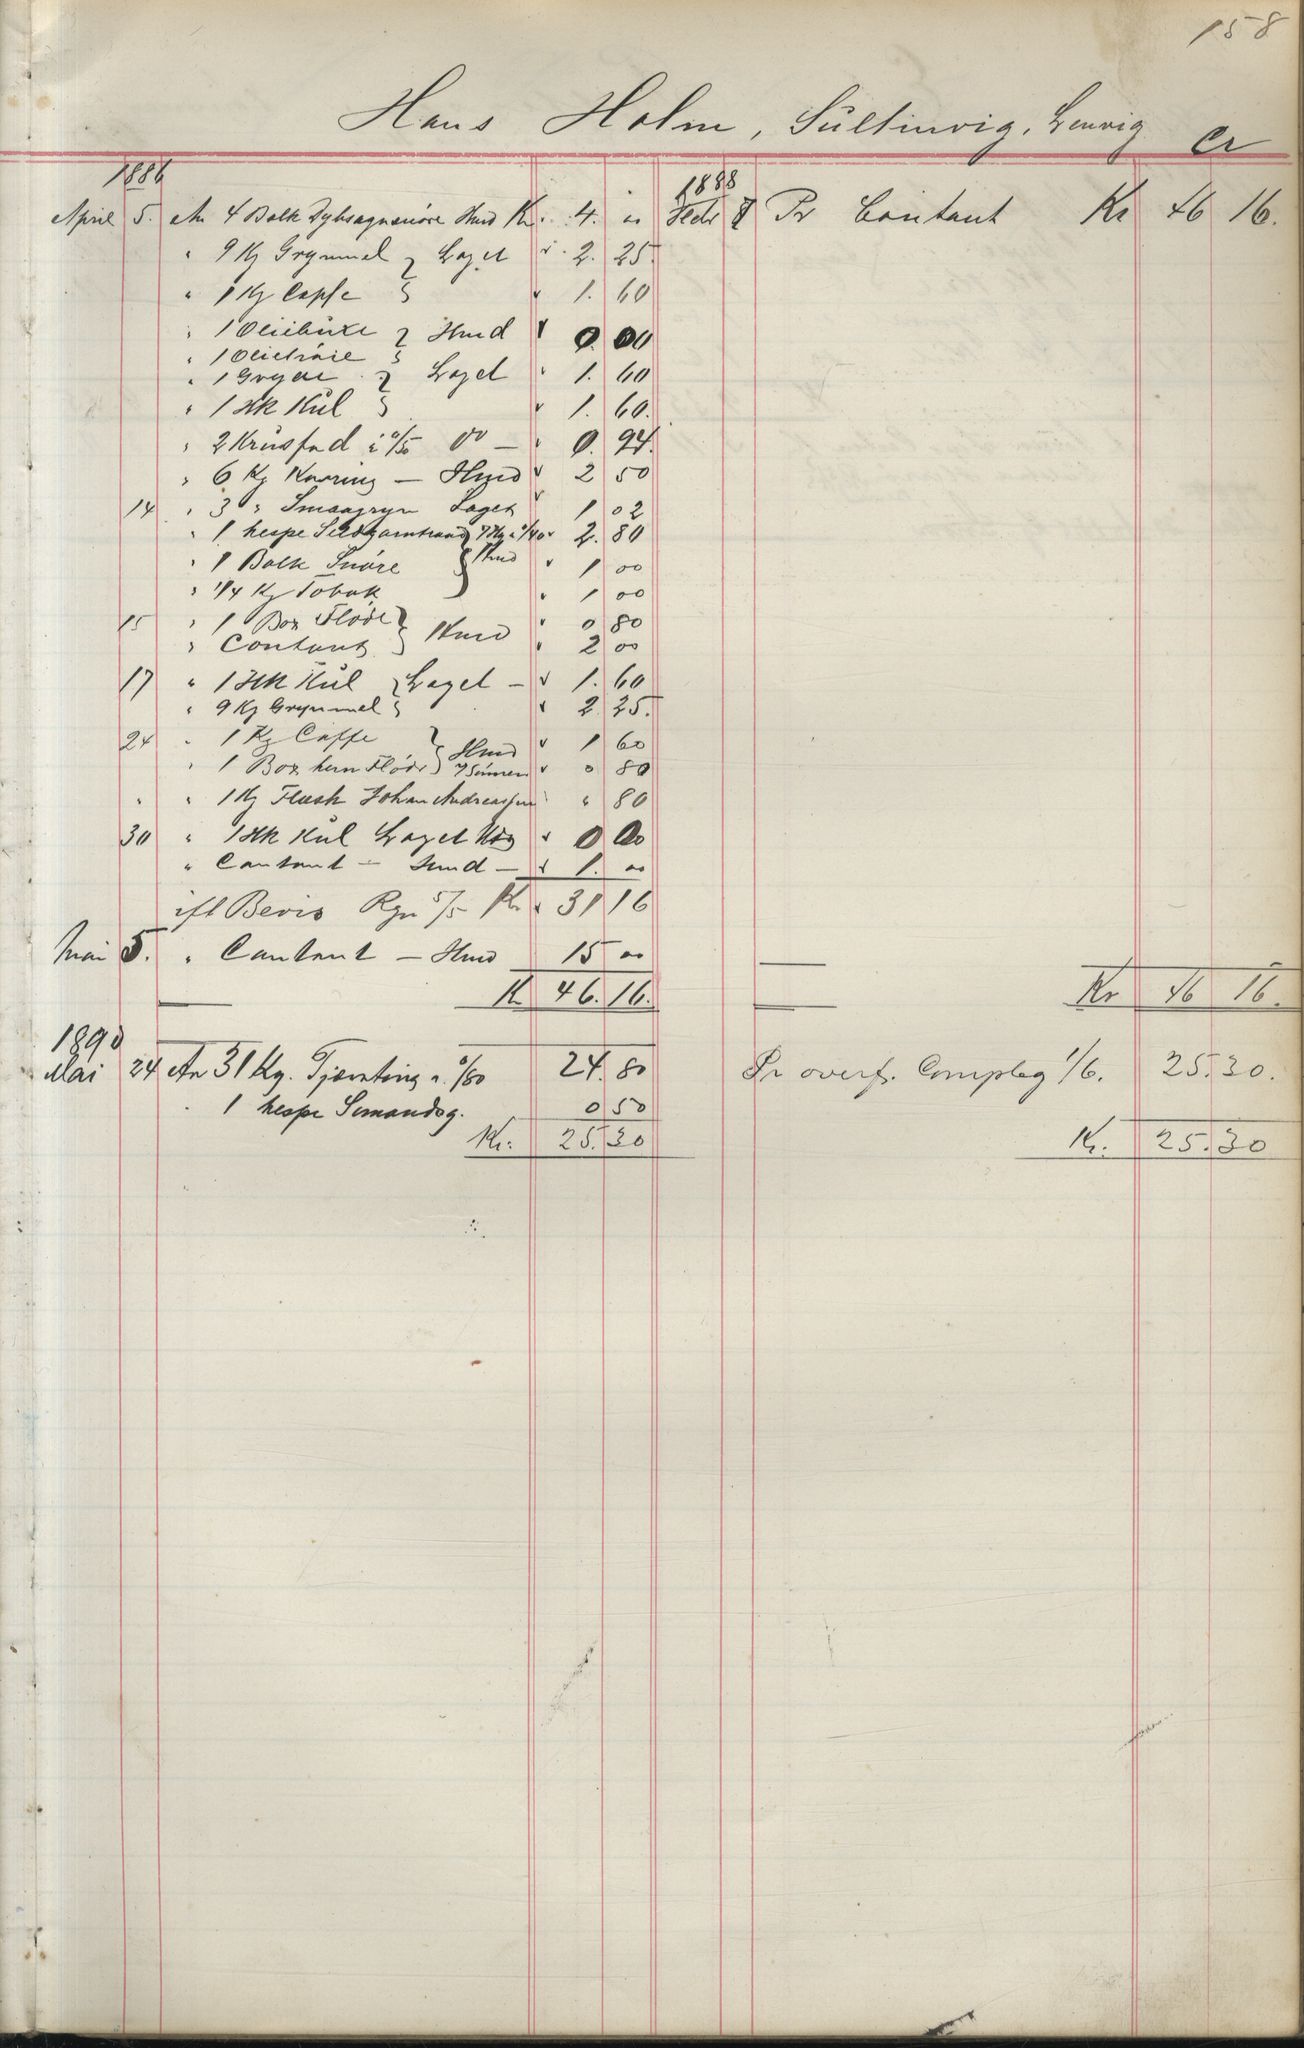 158
Hans Holm, Sultinvig, Lenvig Cr
1886
April 5. An 4 Bolk Dybsagnsnöre Hmd Kr. 4. "
" 9 Kg Grynmel } Laget " 2. 25.
" 1 Kg Caffe } " 1. 60
" 1 Oliebuxe } Hmd " 0. 00
" 1 Olietröie }
" 1 Gryde } Laget " 1. 60
" 1 Hk Kul } " 1. 60.
" 2 Krusfad à 0/50 " 0. 94.
" 6 Kg Kavring — Hmd " 2 50
14 " 3 " Smaagryn Laget " 1 02
" 1 hespe 7 Kg à 0/40 " 2. 80
" 1 Bolk Snöre } Hmd " 1 00
" 1/4 Kg Tobak } " 1 00
15 " 1 Box Flöde } Hmd " 0 80
" Contant } " 2 00
17 " 1 Hk Kul } Laget — " 1. 60
" 9 Kg Grynmel } " 2. 25.
24 " 1 Kg Caffe } Hmd " 1 60
" 1 Box herm Flöde } " 0 80
" " 1 Kg Flesk Johan Andreassen " 80
30 " 1 Hk Kul Laget " 0 00
" Contant — Hmd — " 1. 00
ifl Bevis Rgn 5/5 Kr. 31 16
Mai 5. " Contant — Hmd 15 00
Kr 46. 16.
1888
Febr Pr Contant Kr 46 16.
Kr 46 16.
1890
Mai 24 An 31 Kg. à 0/80 24. 80
" 1 hespe 0 50
Kr. 25. 30
Pr overf. 1/6. 25. 30.
Kr. 25. 30